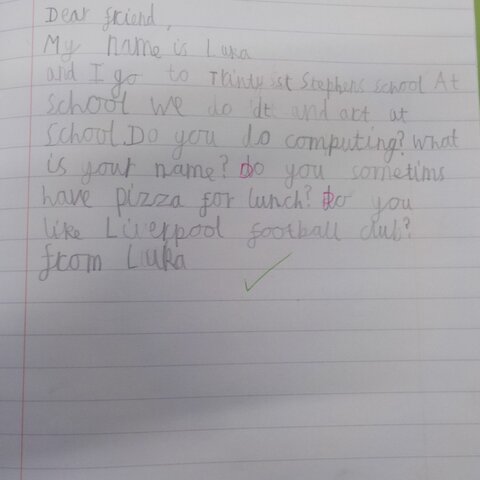 Dear friend,
My name is Luka
and I go to Trinty ist Stephens school At
school we do dt and art at
school. Do you do computing? What
is your name? Do you sometims
have pizza for lunch? Do you
like Liverpool football club?
from Luka